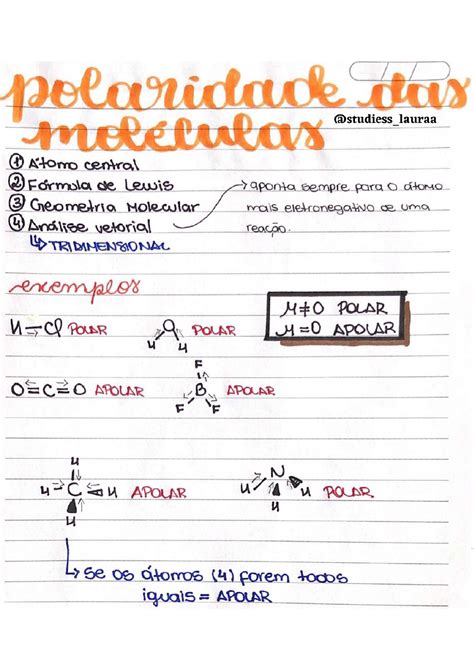 polaridade das
moléculas
@studiess_lauraa
① Átomo central
② Fórmula de Lewis
③ Geometria Molecular
④ Análise vetorial
↳ TRIDIMENSIONAL
→ aponta sempre para o átomo
mais eletronegativo de uma
reação.
exemplos
μ≠0 POLAR
μ=0 APOLAR
H–Cl POLAR
O
H H
POLAR
O=C=O APOLAR
F
B
F F
APOLAR
H
H C H APOLAR
H
N
H H H POLAR
↳ se os átomos (4) forem todos
iguais = APOLAR